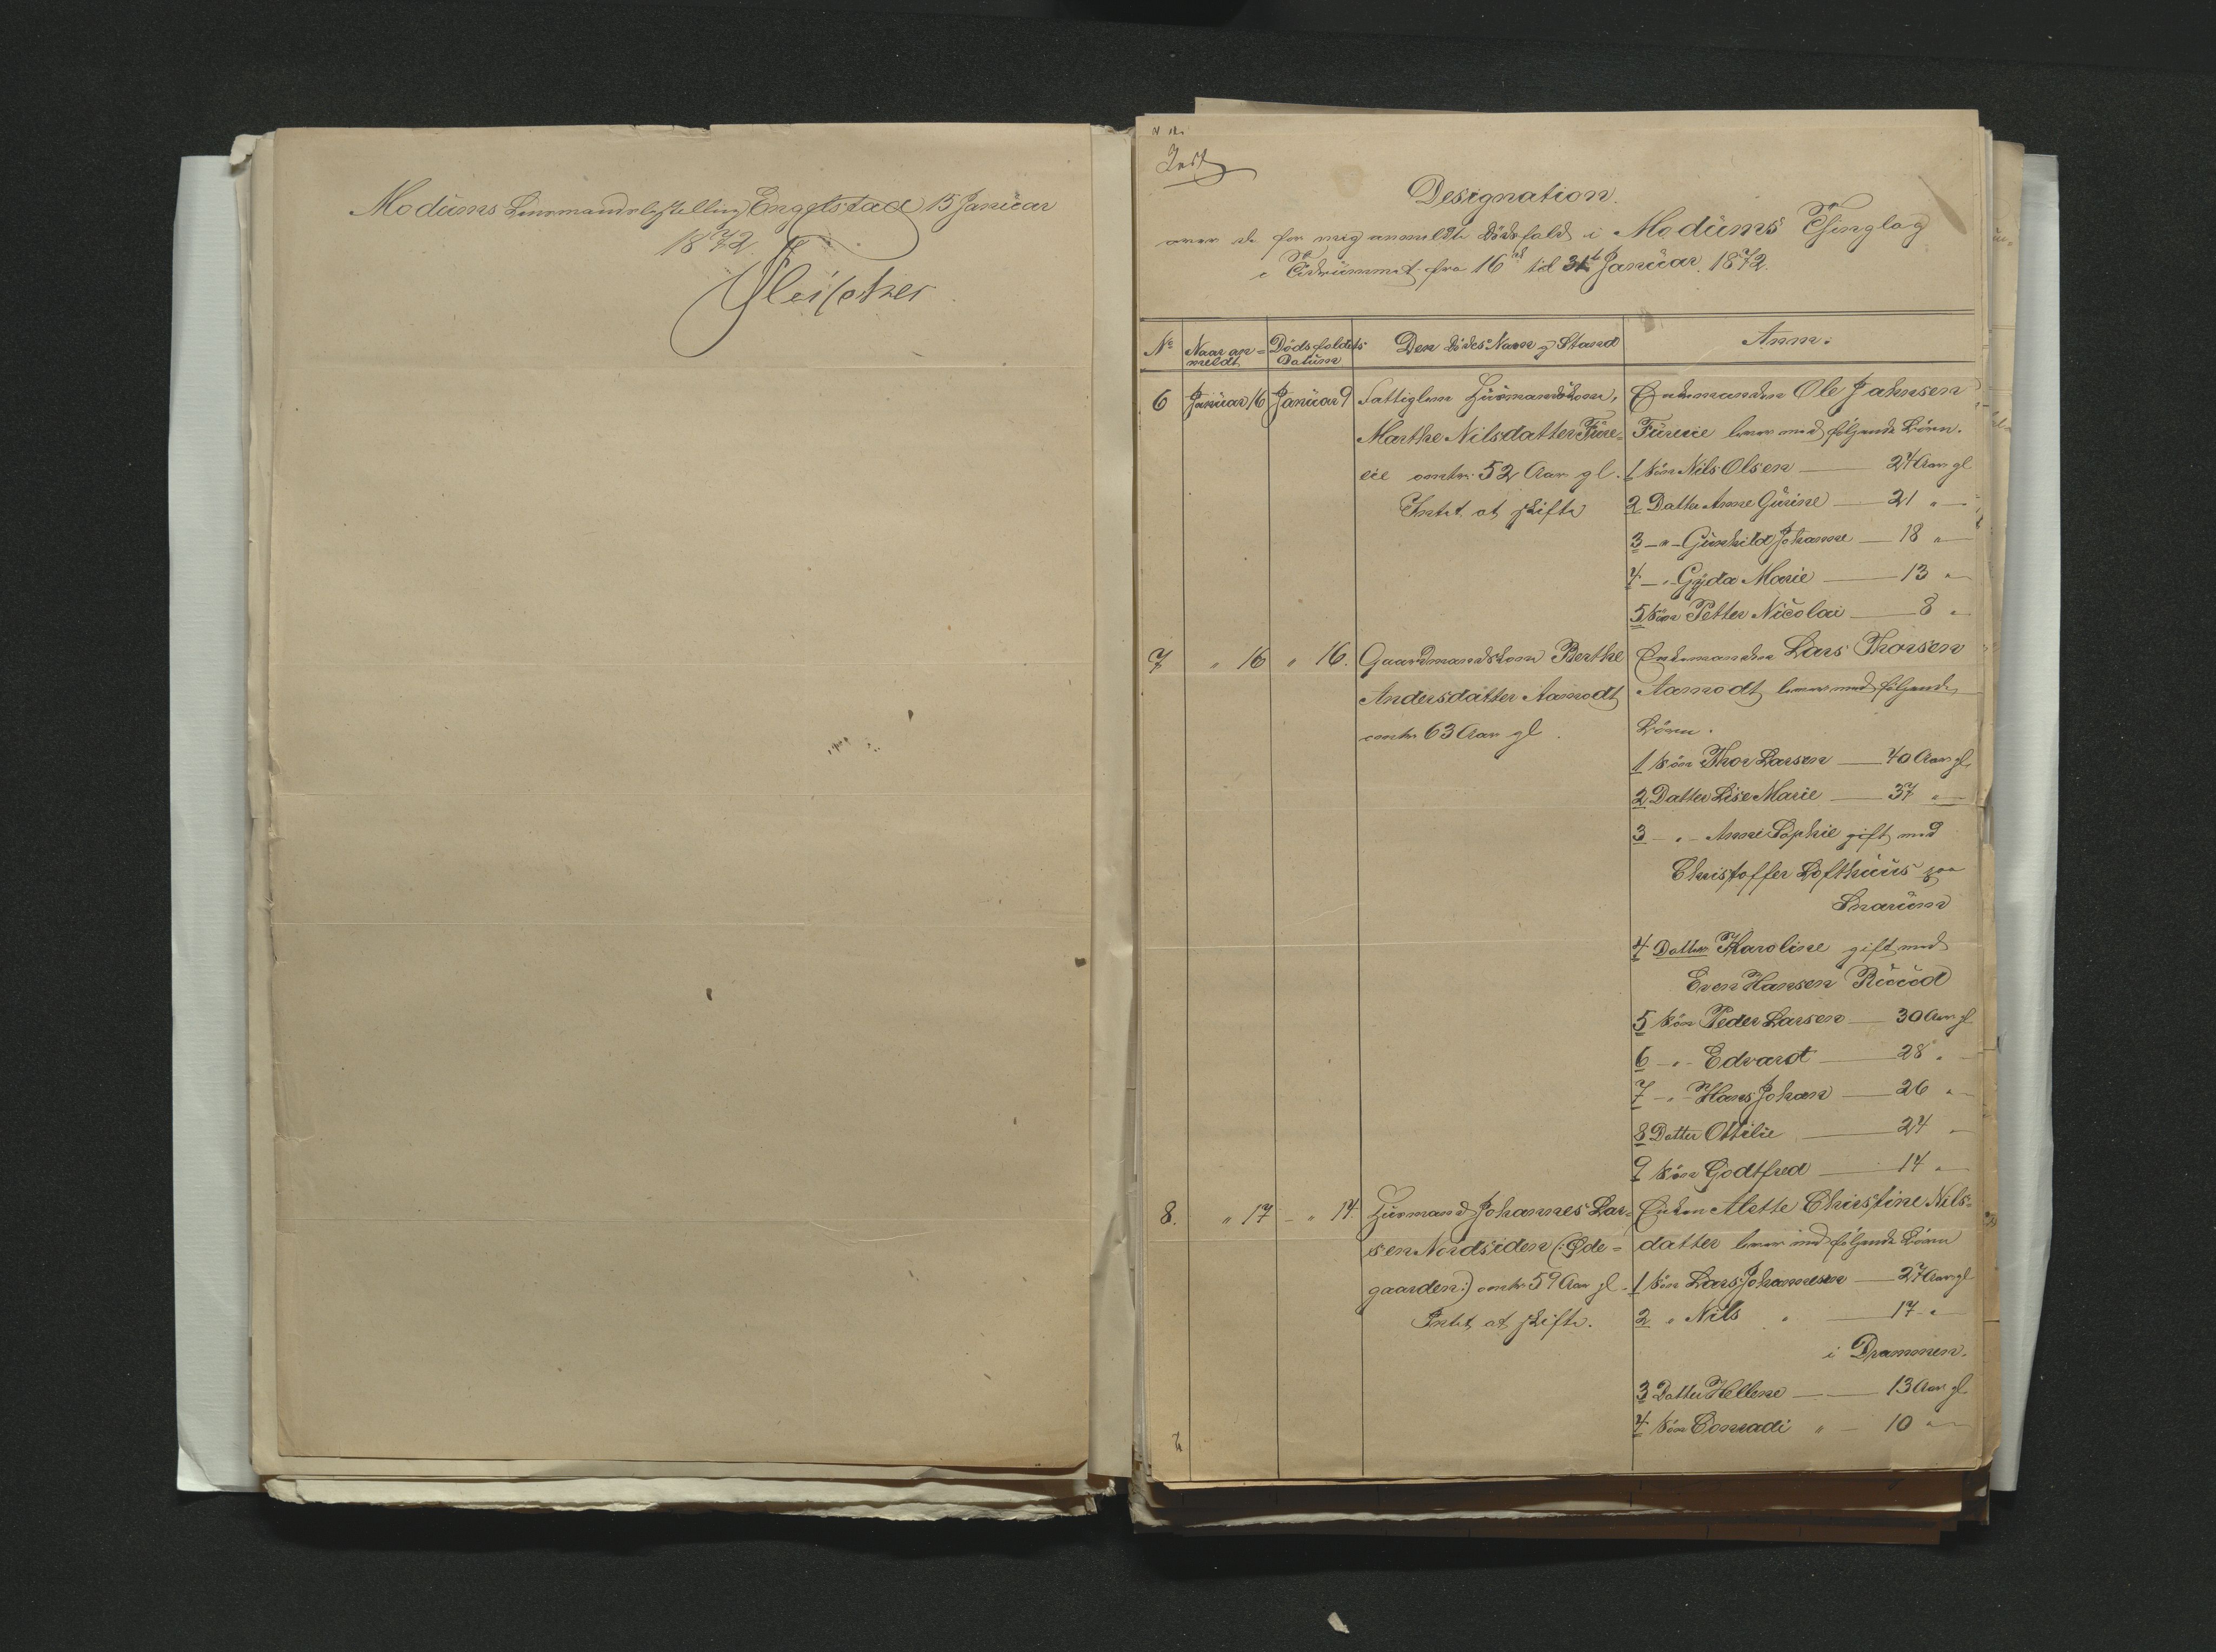 Modums Lensmandsbestilling Engelstad 15 Januar
1872.
Fleischer
Designation.
over de for mig anmeldte Dødsfald i Modums Thinglag
i Tidsrummet fra 16de til 31te Januar 1872.
No
Naar an=
meldt
Dødsfaldets
Datum
Den dødes Navn og Stand
Anm:
6 Januar 16 Januar 9 Fattiglem Huusmandskone, Enkemanden Ole Jahnsen
Marthe Nilsdatter Fure= Fureeie lever med følgende Børn.
eie omtr. 52 Aar gl. 1 Søn Nils Olsen — 24 Aar gl
Intet at skifte 2 Datter Anne Gurine — 21 "
3 — " — Gunhild Johanne — 18 "
4 — " — Gyda Marie — 13 "
5 Søn Petter Nicolai — 8 "
7 " 16 " 16. Gaardmandskone Berthe Enkemanden Lars Thorsen
Andersdatter Aamodt Aamodt lever med følgende
omtr. 63 Aar gl. Børn.
1 Søn Thor Larsen — 40 Aar gl.
2 Datter Lise Marie — 37 "
3 — " — Anne Sophie gift med
Christoffer Lofthuus paa
Snarum
4 Datter Karoline gift med
Even Hansen Ruud
5 Søn Peder Larsen — 30 Aar gl
6 — " — Edvardt — 28 "
7 — " — Hans Johan — 26 "
8 Datter Ottilie — 24 "
9 Søn Godtfred — 14 "
8. " 17 — " 14. Huusmand Johannes Lar= Enken Mette Christine Nils=
sen Nordsiden (: Øde= datter lever med følgende Børn
gaarden:) omtr. 59 Aar gl. 1 Søn Lars Johannesen — 27 Aar gl
Intet at skifte. 2 " Nils " — 17 "
i Drammen.
3 Datter Hellene — 13 Aar gl
4 Søn Conradi " — 10 "